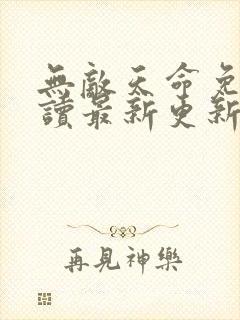 無敵天命免
讀最新更新
再見神樂